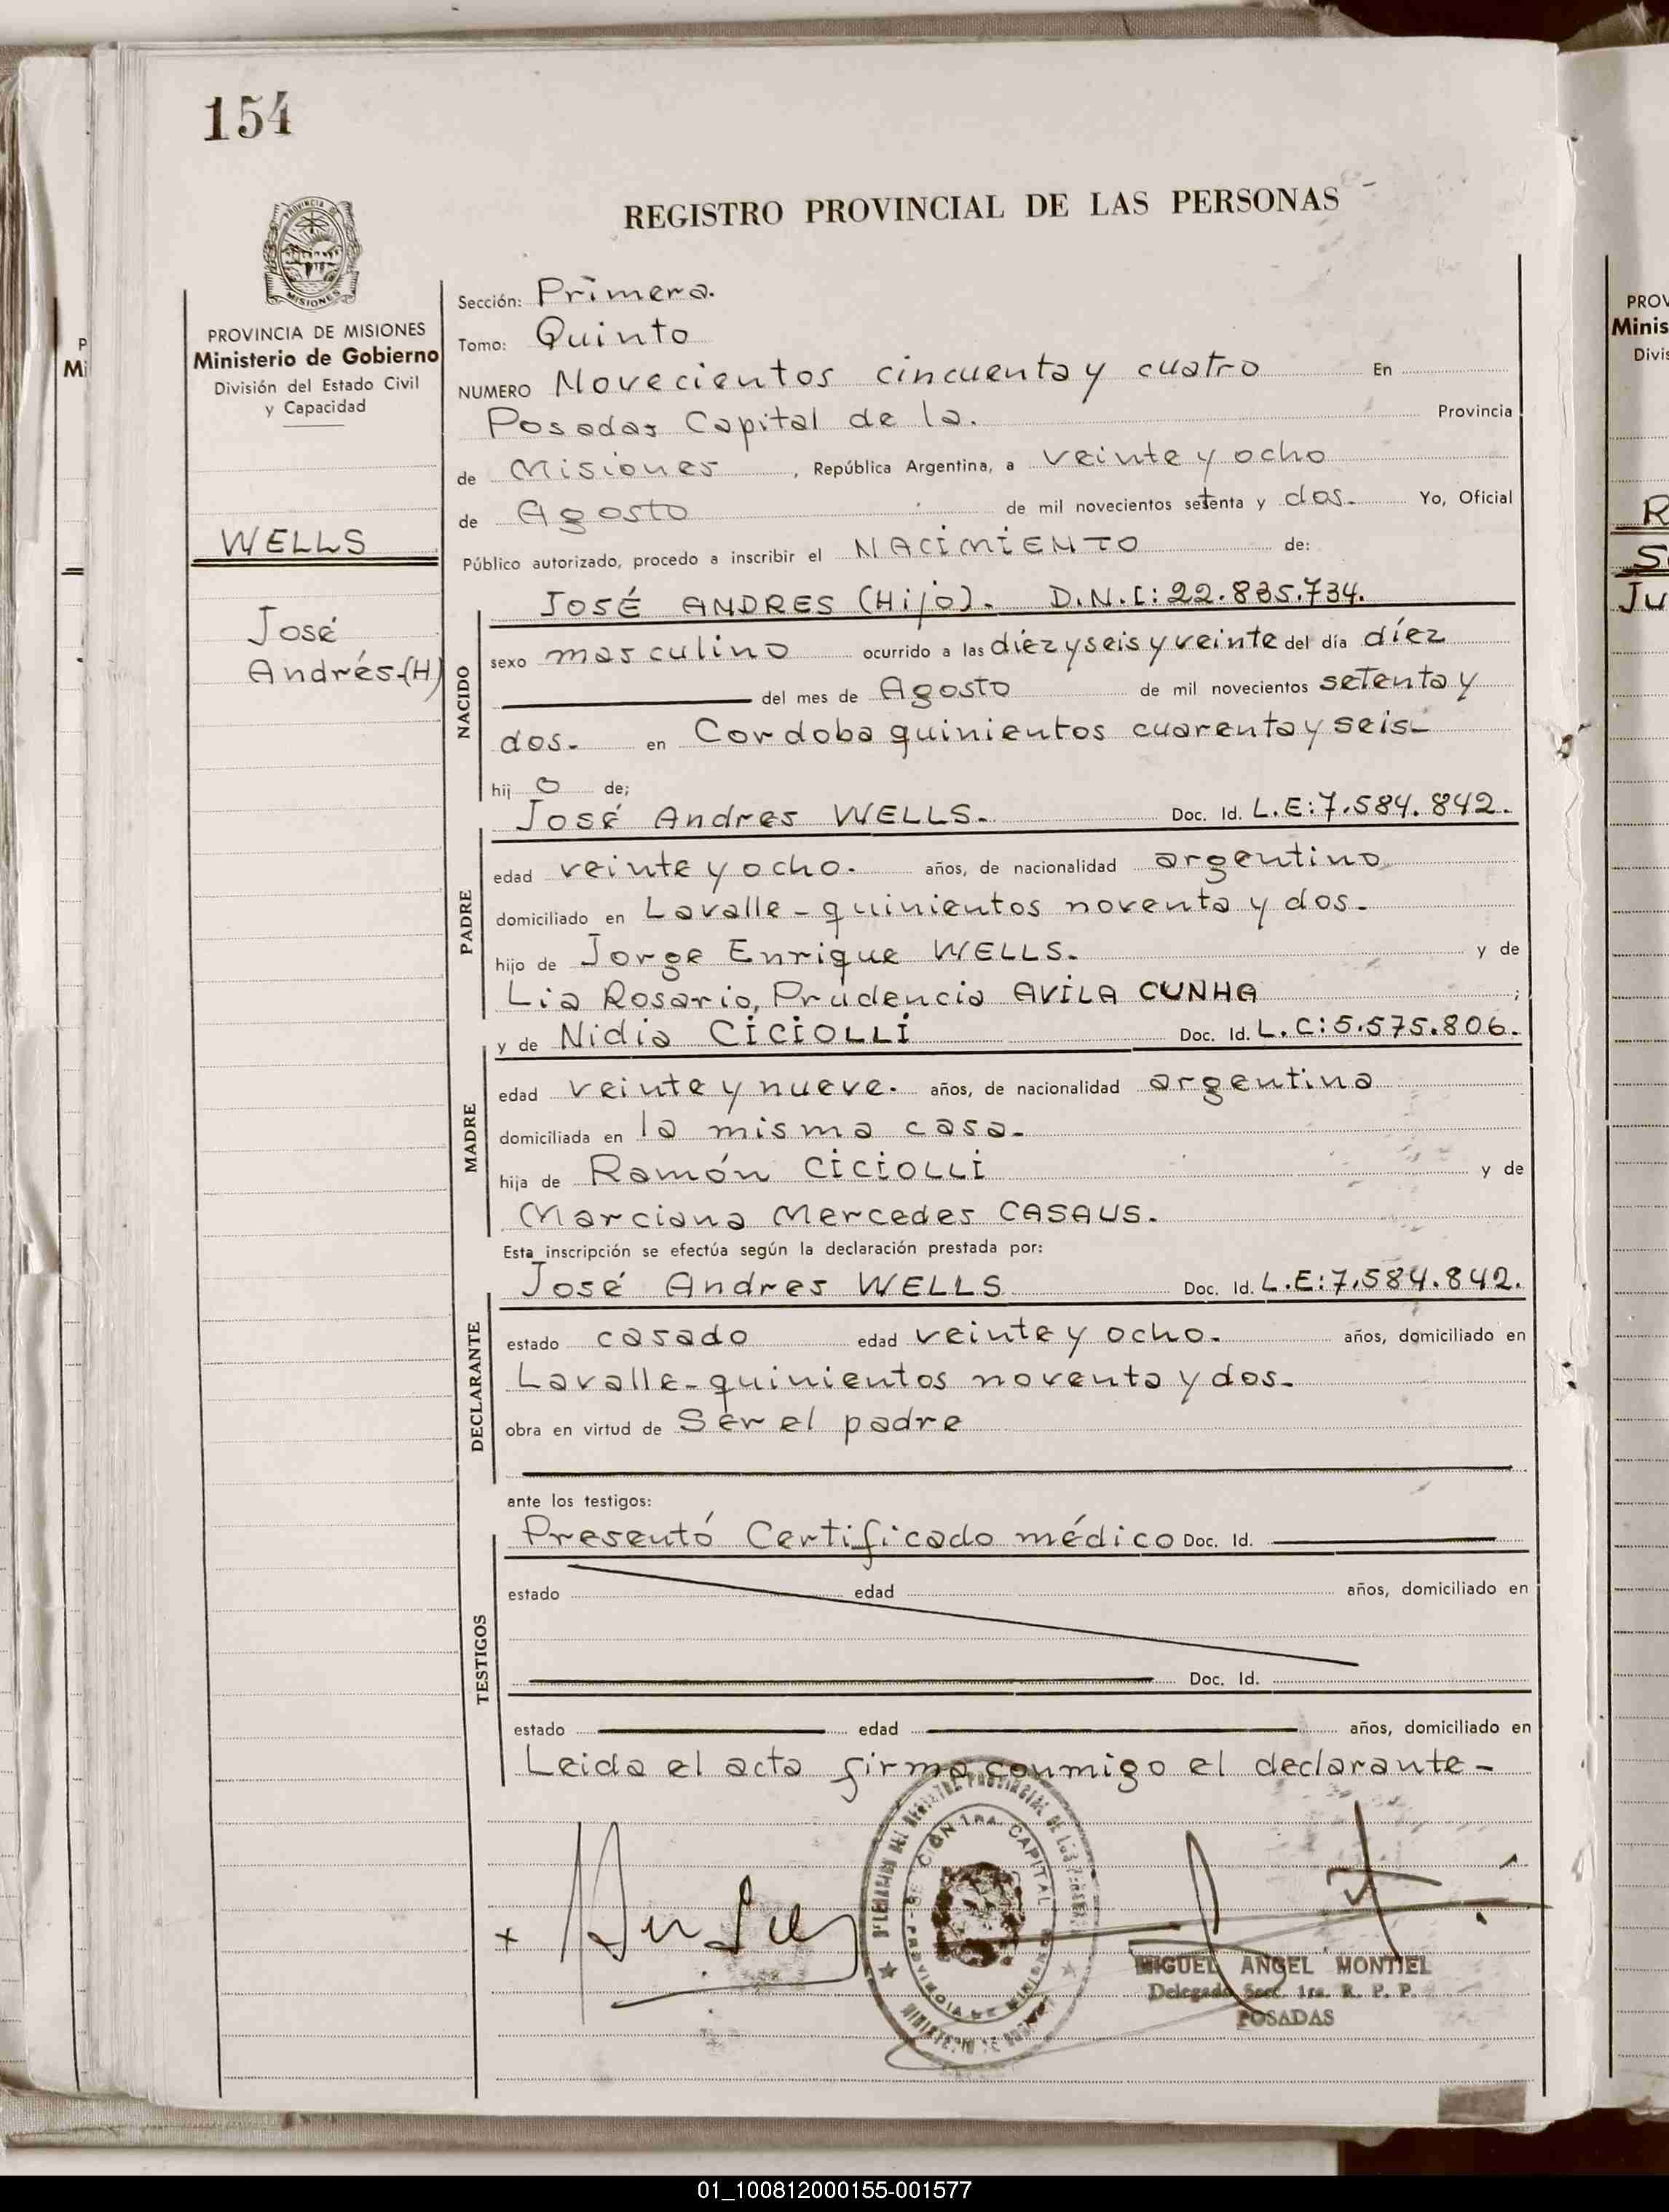 154
REGISTRO PROVINCIAL DE LAS PERSONAS
PROVINCIA DE MISIONES
Ministerio de Gobierno
División del Estado Civil
y Capacidad
WELLS
José
Andrés-(H)
Sección: Primera.
Tomo: Quinto
NUMERO Novecientos cincuenta y cuatro En
Posadas Capital de la. Provincia
de Misiones, República Argentina, a veinte y ocho
de Agosto de mil novecientos setenta y dos.- Yo, Oficial
Público autorizado, procedo a inscribir el NACIMIENTO de:
JOSÉ ANDRES (Hijo).- D.N.I: 22.835.734.
NACIDO
sexo masculino ocurrido a las diez y seis y veinte del día díez
del mes de Agosto de mil novecientos setenta y
dos.- en Cordoba quinientos cuarenta y seis-
hij o de;
José Andres WELLS.- Doc. Id. L.E: 7.584.842.
PADRE
edad veinte y ocho.- años, de nacionalidad argentino
domiciliado en Lavalle - quinientos noventa y dos.-
hijo de Jorge Enrique WELLS.- y de
Lia Rosario, Prudencia AVILA CUNHA ;
y de Nidia CICIOLLI Doc. Id. L.C: 5.575.806.
MADRE
edad veinte y nueve.- años, de nacionalidad argentina
domiciliada en la misma casa.-
hija de Ramón CICIOLLI y de
Marciana Mercedes CASAUS.-
Esta inscripción se efectúa según la declaración prestada por:
José Andres WELLS Doc. Id. L.E: 7.584.842.
DECLARANTE
estado casado edad veinte y ocho.- años, domiciliado en
Lavalle - quinientos noventa y dos.-
obra en virtud de Ser el padre
ante los testigos:
Presentó Certificado médico Doc. Id.
TESTIGOS
estado edad años, domiciliado en
Doc. Id.
estado edad años, domiciliado en
Leida el acta firma conmigo el declarante -
SECCIÓN 1RA CAPITAL
PROVINCIA DE MISIONES
MIGUEL ANGEL MONTIEL
Delegado Secc. 1ra. R. P. P.
POSADAS
01_100812000155-001577